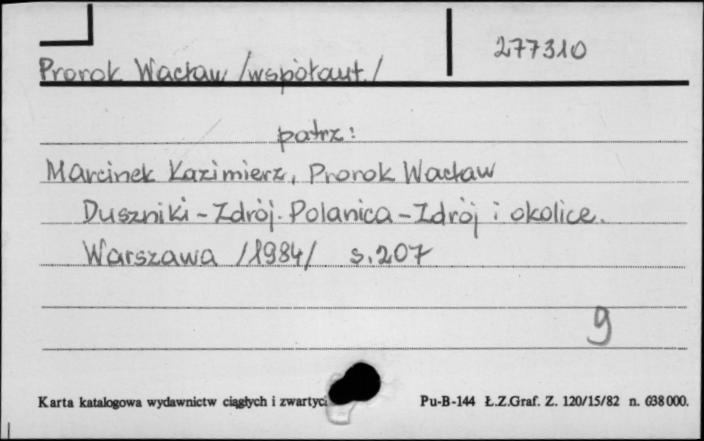 277310
Prorok Wacław /współaut./
patrz:
Marcinek Kazimierz, Prorok Wacław
Duszniki-Zdrój. Polanica-Zdrój i okolice.
Warszawa /1984/ s.207
9
Karta katalogowa wydawnictw ciągłych i Pu-B-144 Ł.Z.Graf. Z. 120/15/82 n. 638000.